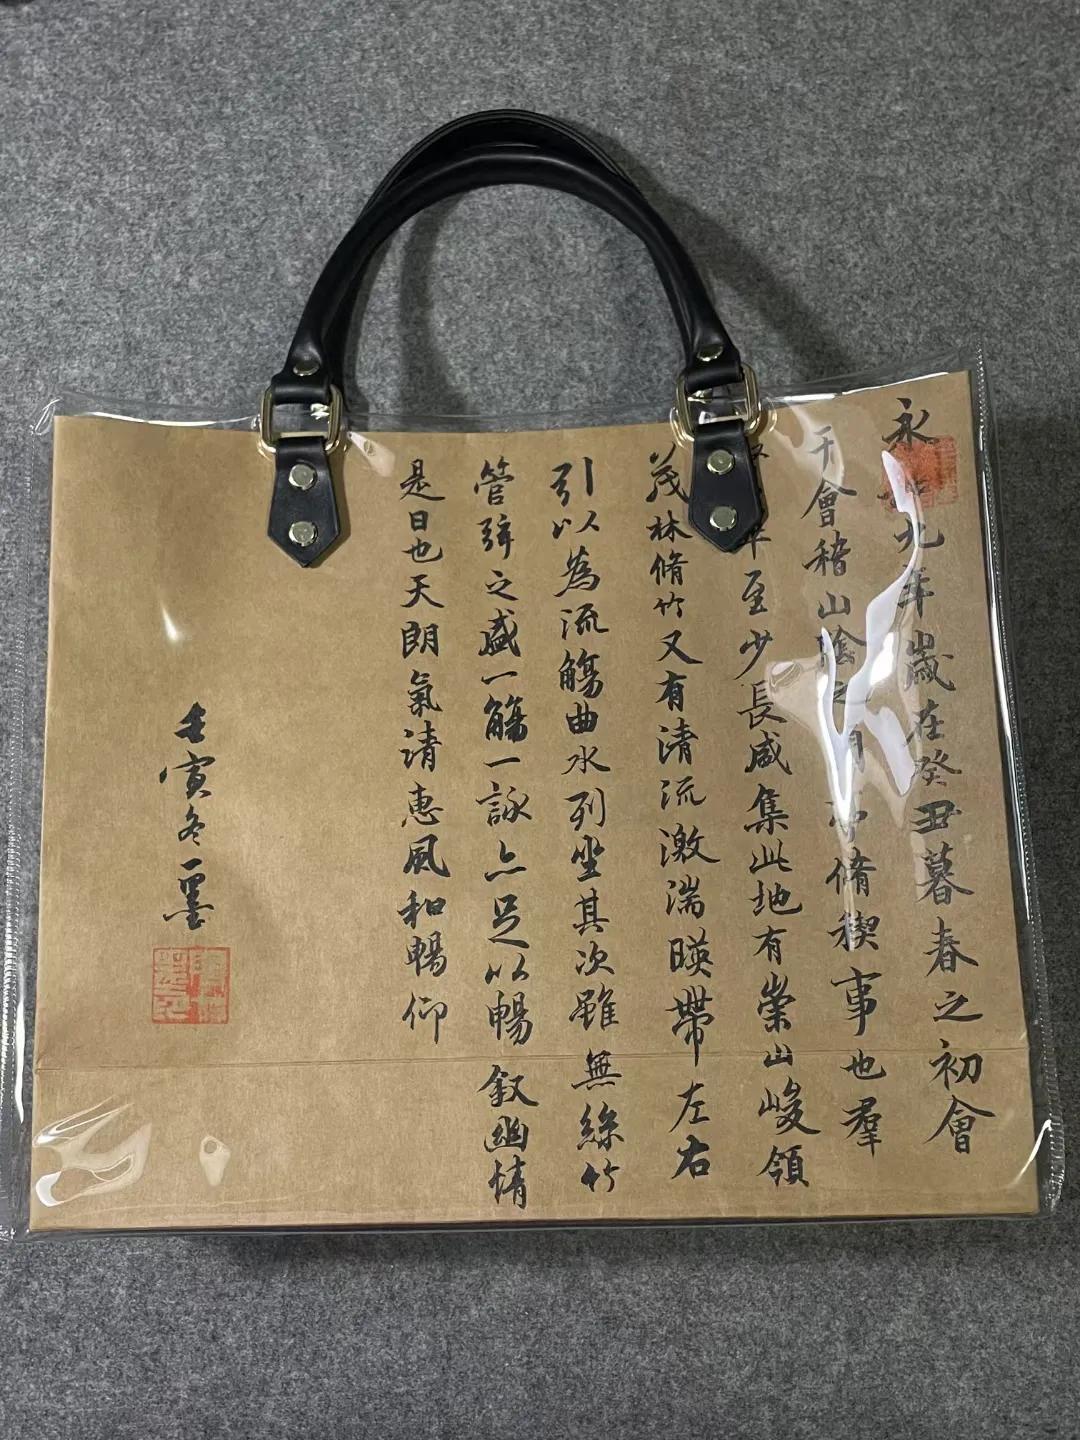 永九年歲在癸丑暮春之初會
于會稽山陰之脩稧事也羣
至少長咸集此地有崇山峻領
茂林脩竹又有清流激湍暎帶左右
引以為流觴曲水列坐其次雖無絲竹
管弦之盛一觴一詠亦足以暢叙幽情
是日也天朗氣清惠風和暢仰
壬寅冬一墨